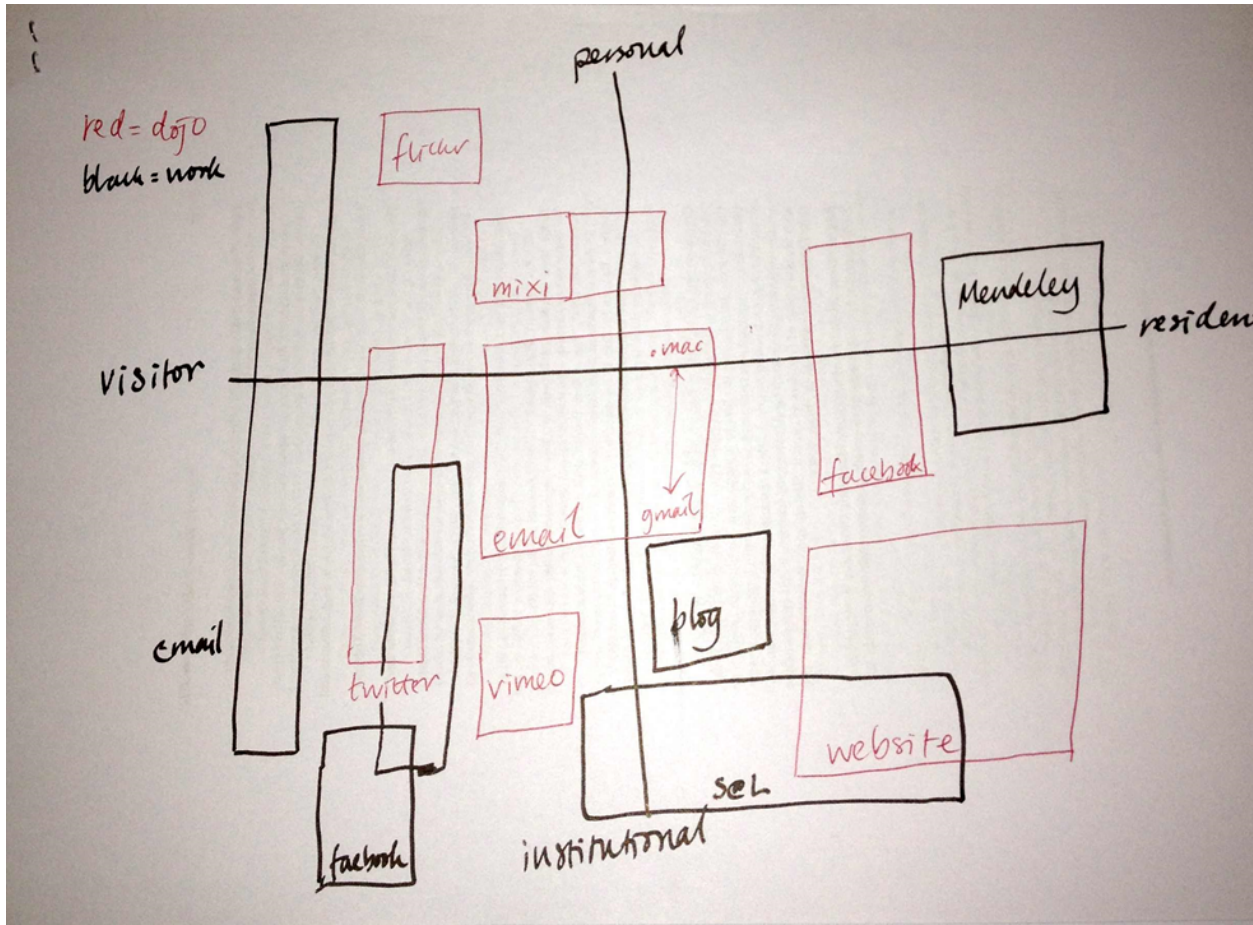 personal
red = dojo
black = work
flickr
mixi
.mac
Mendeley
residen
visitor
facebook
gmail
email
blog
email
twitter
vimeo
website
S@L
facbook
institutional